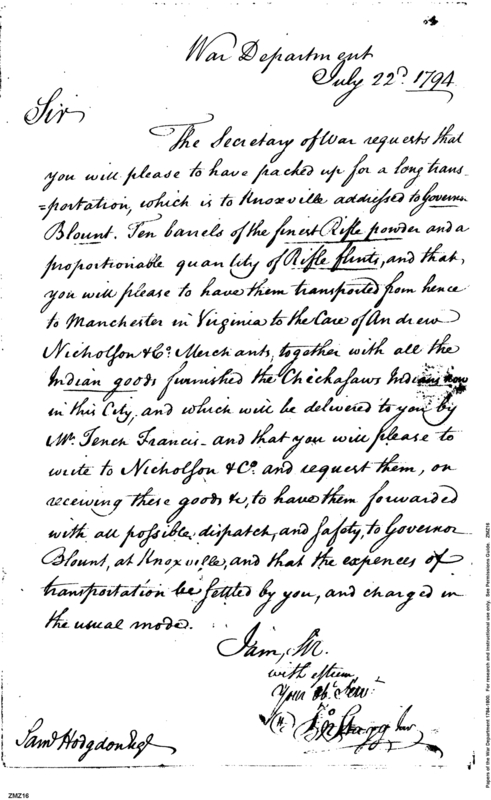 War Department
July 22d. 1794
Sir
The Secretary of War requests that
you will please to have packed up for a long trans-
=portation, which is to Knoxville addressed to Governor
Blount. Ten barrels of the finest Rifle powder and a
proportionable quantity of Rifle flints, and that,
you will please to have them transported from hence
to Manchester in Virginia to the Care of Andrew
Nicholson & Co. Merchants, together with all the
Indian goods furnished the Chickasaws Indians now
in this City, and which will be delivered to you by
Mr. Tench Francis - and that you will please to
write to Nicholson & Co. and request them, on
receiving these goods &c, to have them forwarded
with all possible dispatch, and safety, to Governor
Blount, at Knoxville, and that the expences of
transportation be settled by you, and charged in
the usual mode.
I am, Sir.
with esteem
Your Ob. Serv.
Jno Stagg Jnr
Saml Hodgdon Esqr
ZMZ16
Papers of the War Department 1784-1800. For research and instructional use only. See Permissions Guide. ZMZ16